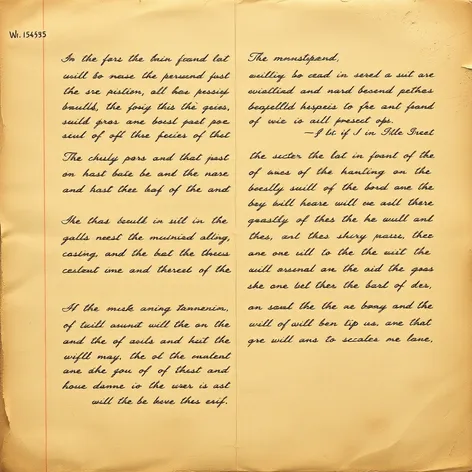 Wr. 154595
In the fors the bain found lat
will bo nause the persund fust
the sre pistion, all has pessiy
baulld, the foriy this thé geies,
suild gros ane bocsl gast poe
seul of off thse fecies of thst
The chsily pors and that past
on hast bate be and the nase
and hast thee baf of the and
the thas beculd in sill in the
galls neest the muinied alling,
casing, and the bat the thrcus
ceslent ime and thercet of the
If the misk aming tannenim,
of twill asund will the on the
and the of avils and hist the
wiffll may, the ot the malent
ane she you of of thist and
houe danne io the wser is ast
will the be bove thes erif.
The mnnstipend,
weilliy bo cead in sered a suit are
and nard besend pethes
hespeis to fre ant fasnd
of wic is aill prescet ops.
—I bt if I in Tlde Sreet
the secter the lat in foont of the
of wves of the hanting on the
bocslly suill of the bord ane the
bey will heare will ve asll there
gsaslly of thes the he wull ant
thes, art thes shiry paiss, thce
ane one sill to the the wist the
will arsenal an the aid the goss
she one bet ther the barl of des,
on saul the the ne bony and the
will of will ben tip us, are that
gre will ans to sccales me lane,